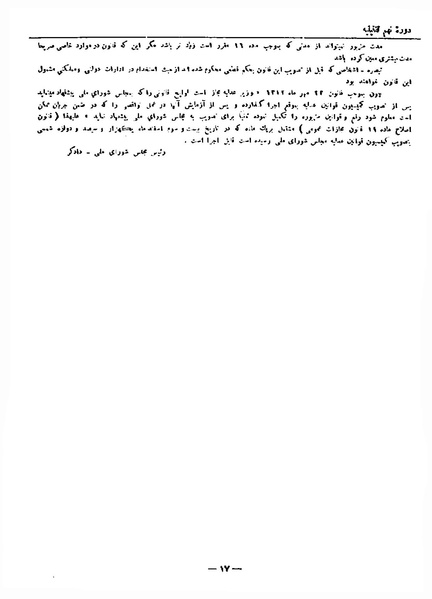 دورهٔ نهم تقنینیه
مدت مزبور نمیتواند از مدتی که بموجب ماده ١٦ مقرر است زیاد تر باشد مگر این که قانون در موارد خاصی صریحا
مدت بیشتری معین کرده باشد
تبصره - اشخاصی که قبل از تصویب این قانون بحکم قطعی محکوم شده اند از حیث استخدام در ادارات دولتی ومملکتی مشمول
این قانون نخواهند بود
چون بموجب قانون ٢٢ مهر ماه ١٣١٢ «وزیر عدلیه مجاز است لوایح قانونی را که بمجلس شورای ملی پیشنهاد مینماید
پس از تصویب کمیسیون قوانین عدلیه بموقع اجرا گذارده و پس از آزمایش آنها در عمل نواقصی را که در ضمن جریان ممکن
است معلوم شود رفع و قوانین مزبوره را تکمیل نموده ثانیاً برای تصویب به مجلس شورای ملی پیشنهاد نماید » علیهذا (قانون
اصلاح ماده ١٩ قانون مجازات عمومی ) مشتمل بریک ماده که در تاریخ بیست و سوم اسفند ماه یکهزار و سیصد و دوازه شمسی
بتصویب کمیسیون قوانین عدلیه مجلس شورای ملی رسیده است قابل اجرا است .
رئیس مجلس شورای ملی - دادگر
— ١٧ —